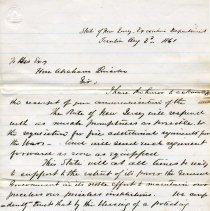 State of New Jersey, Executive Department
Trenton Aug 2nd 1861
To His Excy
Hon Abraham Lincoln
Sir,
I have the honor to acknowledge
the receipt of your communication of the
The State of New Jersey will respond
with as much promptness as possible to
the requisition for five additional regiments for
the War. And will send each regiment
forward as soon as equipped.
This State will at all times be ready
to support to the extent of its power the General
Government in its noble effort to maintain our
priceless and peerless institutions. We
trust that by the blessing of a protecting